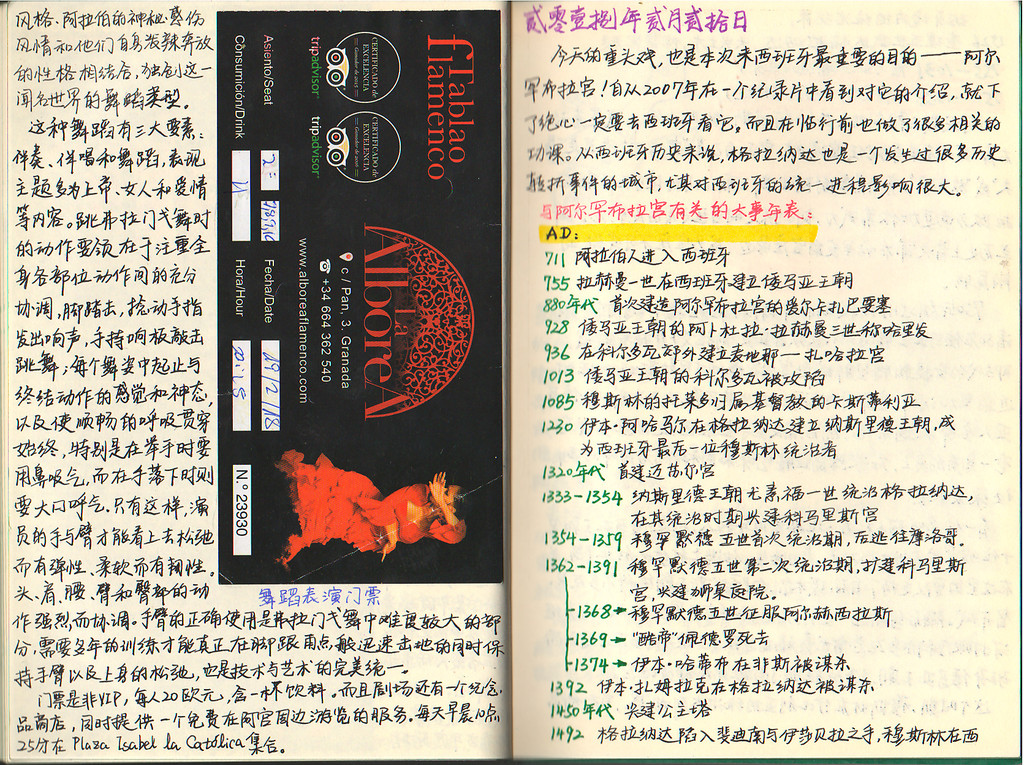 风格、阿拉伯的神秘感伤
风情和他们自身泼辣奔放
的性格相结合，独创这一
闻名世界的舞蹈类型。
这种舞蹈有三大要素：
伴奏、伴唱和舞蹈，表现
主题多为上帝、女人和爱情
等内容。跳弗拉门戈舞时
的动作要领在于注重全
身各部位动作间的充分
协调，脚踏击，捻动手指
发出响声，手持响板敲击
跳舞；每个舞姿中起止与
终结动作的感觉和神态，
以及使顺畅的呼吸贯穿
始终，特别是在举手时要
用鼻吸气，而在手落下时则
要大口呼气。只有这样，演
员的手与臂才能看上去松弛
而有弹性、柔软而有韧性。
头、肩、腰、臂和臀部的动
作强烈而协调。手臂的正确使用是弗拉门戈舞中难度较大的部
分，需要多年的训练才能真正在脚跟雨点般迅速击地的同时保
持手臂以及上身的松弛，也是技术与艺术的完美统一。
门票是非VIP，每人20欧元，含一杯饮料。而且剧场还有一个纪念
品商店，同时提供一个免费在阿宫周边游览的服务。每天早晨10点
25分在 Plaza Isabel la Católica 集合。
Tablao
flamenco
CERTIFICADO de
EXCELENCIA
tripadvisor
CERTIFICADO de
EXCELENCIA
tripadvisor
La
AlboreA
c / Pan, 3. Granada
+34 664 362 540
www.alboreaflamenco.com
Asiento/Seat
Consumición/Drink
Fecha/Date
19/2/18
Hora/Hour
N.º 23930
舞蹈表演门票
贰零壹捌年贰月贰拾日
今天的重头戏，也是本次来西班牙最重要的目的——阿尔
罕布拉宫！自从2007年在一个纪录片中看到对它的介绍，就下
了绝心一定要去西班牙看它。而且在临行前也做了很多相关的
功课。从西班牙历史来说，格拉纳达也是一个发生过很多历史
转折事件的城市，尤其对西班牙的统一进程影响很大。
与阿尔罕布拉宫有关的大事年表：
AD：
711 阿拉伯人进入西班牙
755 拉赫曼一世在西班牙建立倭马亚王朝
880年代 首次建造阿尔罕布拉宫的爱尔卡扎巴要塞
928 倭马亚王朝的阿卜杜拉·拉赫曼三世称哈里发
936 在科尔多瓦郊外建立麦地那—扎哈拉宫
1013 倭马亚王朝的科尔多瓦被攻陷
1085 穆斯林的托莱多归属基督教的卡斯蒂利亚
1230 伊本·阿哈马尔在格拉纳达建立纳斯里德王朝，成
为西班牙最后一位穆斯林统治者
1320年代 首建迈苏尔宫
1333—1354 纳斯里德王朝尤素福一世统治格拉纳达，
在其统治时期兴建科马里斯宫
1354—1359 穆罕默德五世首次统治期，后逃往摩洛哥.
1362—1391 穆罕默德五世第二次统治期，扩建科马里斯
宫，兴建狮巢庭院。
1368→ 穆罕默德五世征服阿尔赫西拉斯
1369→ “酷帝”佩德罗死去
1374→ 伊本·哈蒂布在非斯被谋杀
1392 伊本·扎姆拉克在格拉纳达被谋杀.
1450年代 兴建公主塔
1492 格拉纳达陷入斐迪南与伊莎贝拉之手，穆斯林在西